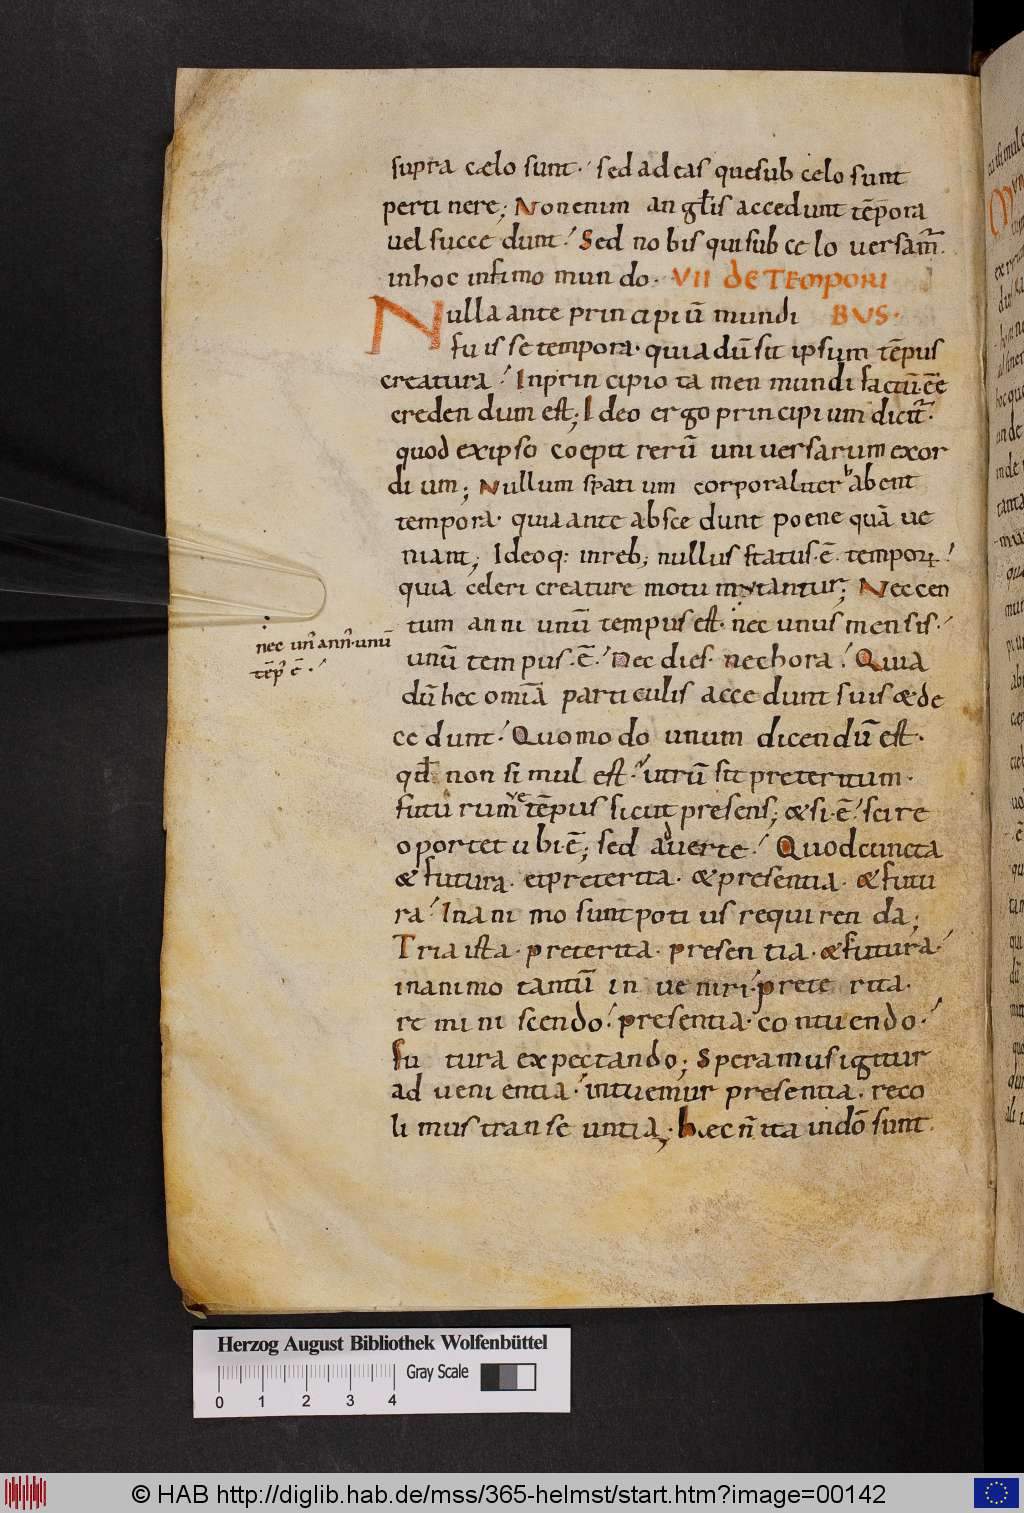 supra cælo sunt· sed ad eas que sub celo sunt
pertinere; Non enim angl̄is accedunt tēpora
uel succedunt: Sed nobis qui sub celo uersam̄.
in hoc infimo mundo· VII DE TEMPORI
BUS·
Nulla ante principiū mundi
fuisse tempora· quia dū sit ipsum tēpus
creatura: In principio tamen mundi factū ēē
credendum est; Ideo ergo principium dicit̄·
quod ex ipso coepit rerū uniuersarum exor
dium; Nullum spatium corporaliter habent
tempora· quia ante abscedunt poene quā ue
niant; Ideoq: in reb; nullus status· ē· temporꝝ:
quia celeri creature motu mutantur; Nec cen
tum anni unū tempus est· nec unus mensis·
nec un' ann'· unū
tēp' ē·
unū tempus· ē· Nec dies· nec hora: Quia
dū hec omīa particulis accedunt suis & de
cedunt: Quomodo unum dicendū est·
qd̄ non simul est· utrū sit preteritum·
futurum ue tēpus sicut presens; & si· ē· scire
oportet ubi· ē; sed aduerte: Quod cuncta
& futura· et preterita· & presentia· & futu
ra: In animo sunt potius requirenda;
Tria ista· preterita· presentia· & futura·
in animo tantū inueniri· preterita·
reminiscendo: presentia· contuendo·
Futura expectando; Speramus igitur
aduenientia· intuemur presentia· reco
limus transeuntia; Hæc n̄ ita in dō sunt.
Herzog August Bibliothek Wolfenbüttel
Gray Scale
0 1 2 3 4
© HAB http://diglib.hab.de/mss/365-helmst/start.htm?image=00142